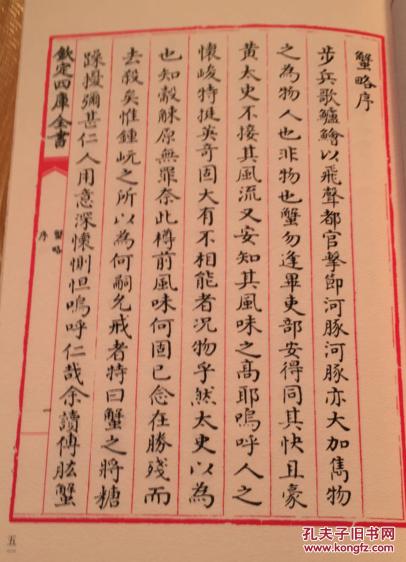 蟹略序
步兵歌鱸鱠以飛聲都官擊節河豚河豚亦大加雋物
之為物人也非物也蟹勿逢畢吏部安得同其快且豪
黃太史不接其風流又安知其風味之高耶嗚呼人之
懷峻特挺英奇固大有不相能者況物乎然太史以為
也知觳觫原無罪奈此樽前風味何固已念在勝殘而
去殺矣惟鍾岏之所以為何嗣允戒者特曰蟹之將糖
躁擾彌甚仁人用意深懷惻怛嗚呼仁哉余讀傅肱蟹
欽定四庫全書
蟹略
序
五
孔夫子旧书网
www.kongfz.com